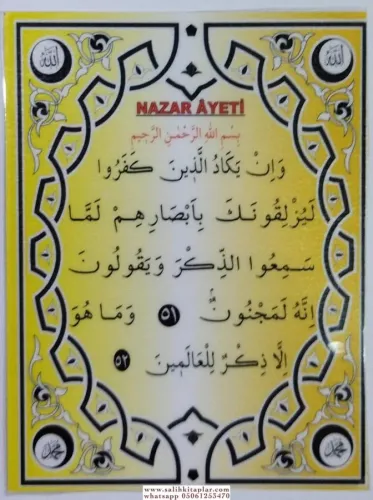 الله
الله
NAZAR ÂYETİ
بِسْمِ اللهِ الرَّحْمٰنِ الرَّحِيمِ
وَاِنْ يَكَادُ الَّذِينَ كَفَرُوا
لَيُزْلِقُونَكَ بِاَبْصَارِهِمْ لَمَّا
سَمِعُوا الذِّكْرَ وَيَقُولُونَ
اِنَّهُ لَمَجْنُونٌۢ ٥١ وَمَا هُوَ
اِلَّا ذِكْرٌ لِلْعَالَمِينَ ٥٢
محمد
محمد
www.salihkitaplar.com
whatsapp 05061253470